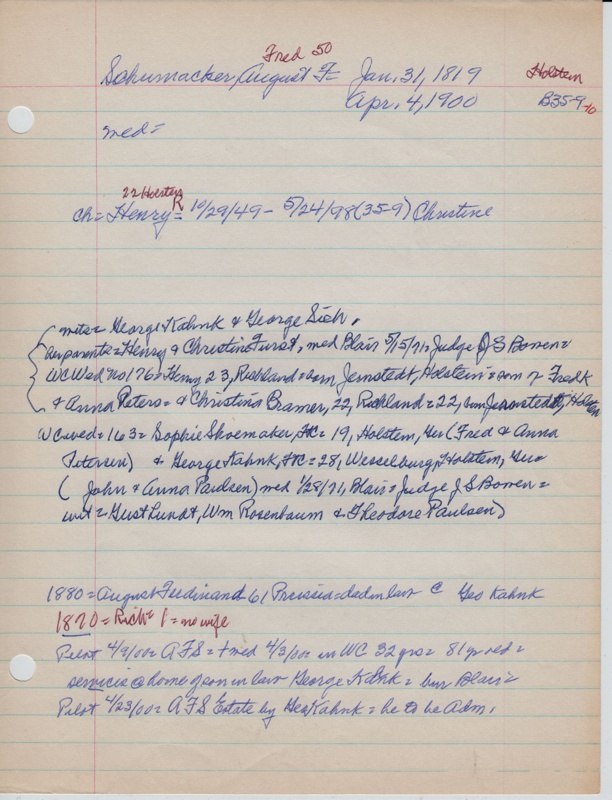 Fred 50
Schumacker, August F= Jan. 31, 1819 Holstein
Apr. 4, 1900 B35-9-10
med=
22 Holstein R
ch= Henry= 10/29/49 - 5/24/98 (35-9) Christine
nites= George Kahnk & George Sieh.
her parents= Henry & Christine Furst, med Blair 5/15/71, Judge J S Bowen=
WC Wed No 176= Henry 23, Richland= born Jernstedt, Holstein= son of Fredk
& Anna Peters= & Christina Bramer, 22, Richland= 22, born Jernstedt, Holstein
WC wed= 163= Sophie Shoemaker, FC= 19, Holstein, Ger (Fred & Anna
Petersen) & George Kahnk, FC= 28, Wesselburg, Holstein, Ger
(John & Anna Paulsen) med 1/28/71, Blair= Judge J S Bowen=
wit= Gust Lundt, Wm Rosenbaum & Theodore Paulsen)
1880= August Ferdinand 61 Prussia= dad in law @ Geo Kahnk
1870= Rich= 1= no wife
Pilot 4/9/00= AFS= + wed 4/3/00= in WC 32 yrs= 81 yr old=
services @ dome g son in law George Kahnk= bur Blair=
Pilot 4/23/00= AFS Estate by Geo Kahnk= he to be Adm.